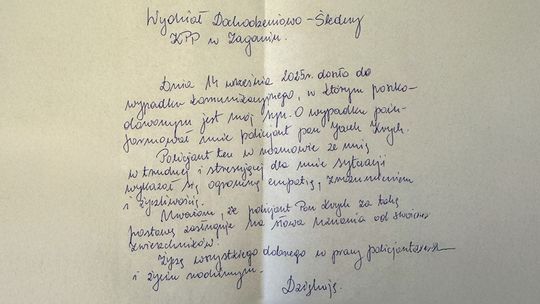 Wydział Dochodzeniowo-Śledczy
KPP w Żaganiu.
Dnia 14 września 2025r. doszło do
wypadku komunikacyjnego, w którym poszko-
dowanym jest mój syn. O wypadku poin-
formował mnie policjant pan Jacek
Policjant ten w rozmowie ze mną
w trudnej i stresującej dla mnie sytuacji
wykazał się ogromną empatią, zrozumieniem
i życzliwością.
Uważam, że policjant Pan za taką
postawę zasługuje na słowa uznania od swoich
zwierzchników.
Życzę wszystkiego dobrego w pracy
i życiu rodzinnym.
Dziękuję.